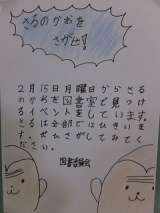 さるのかおを
さがせ!!
2月15日月曜日からさる
のかおを図書室で見つけ
るイベントを ます。
さるは全部で
ぜひさがしてみてく
ださい。
図書委員会